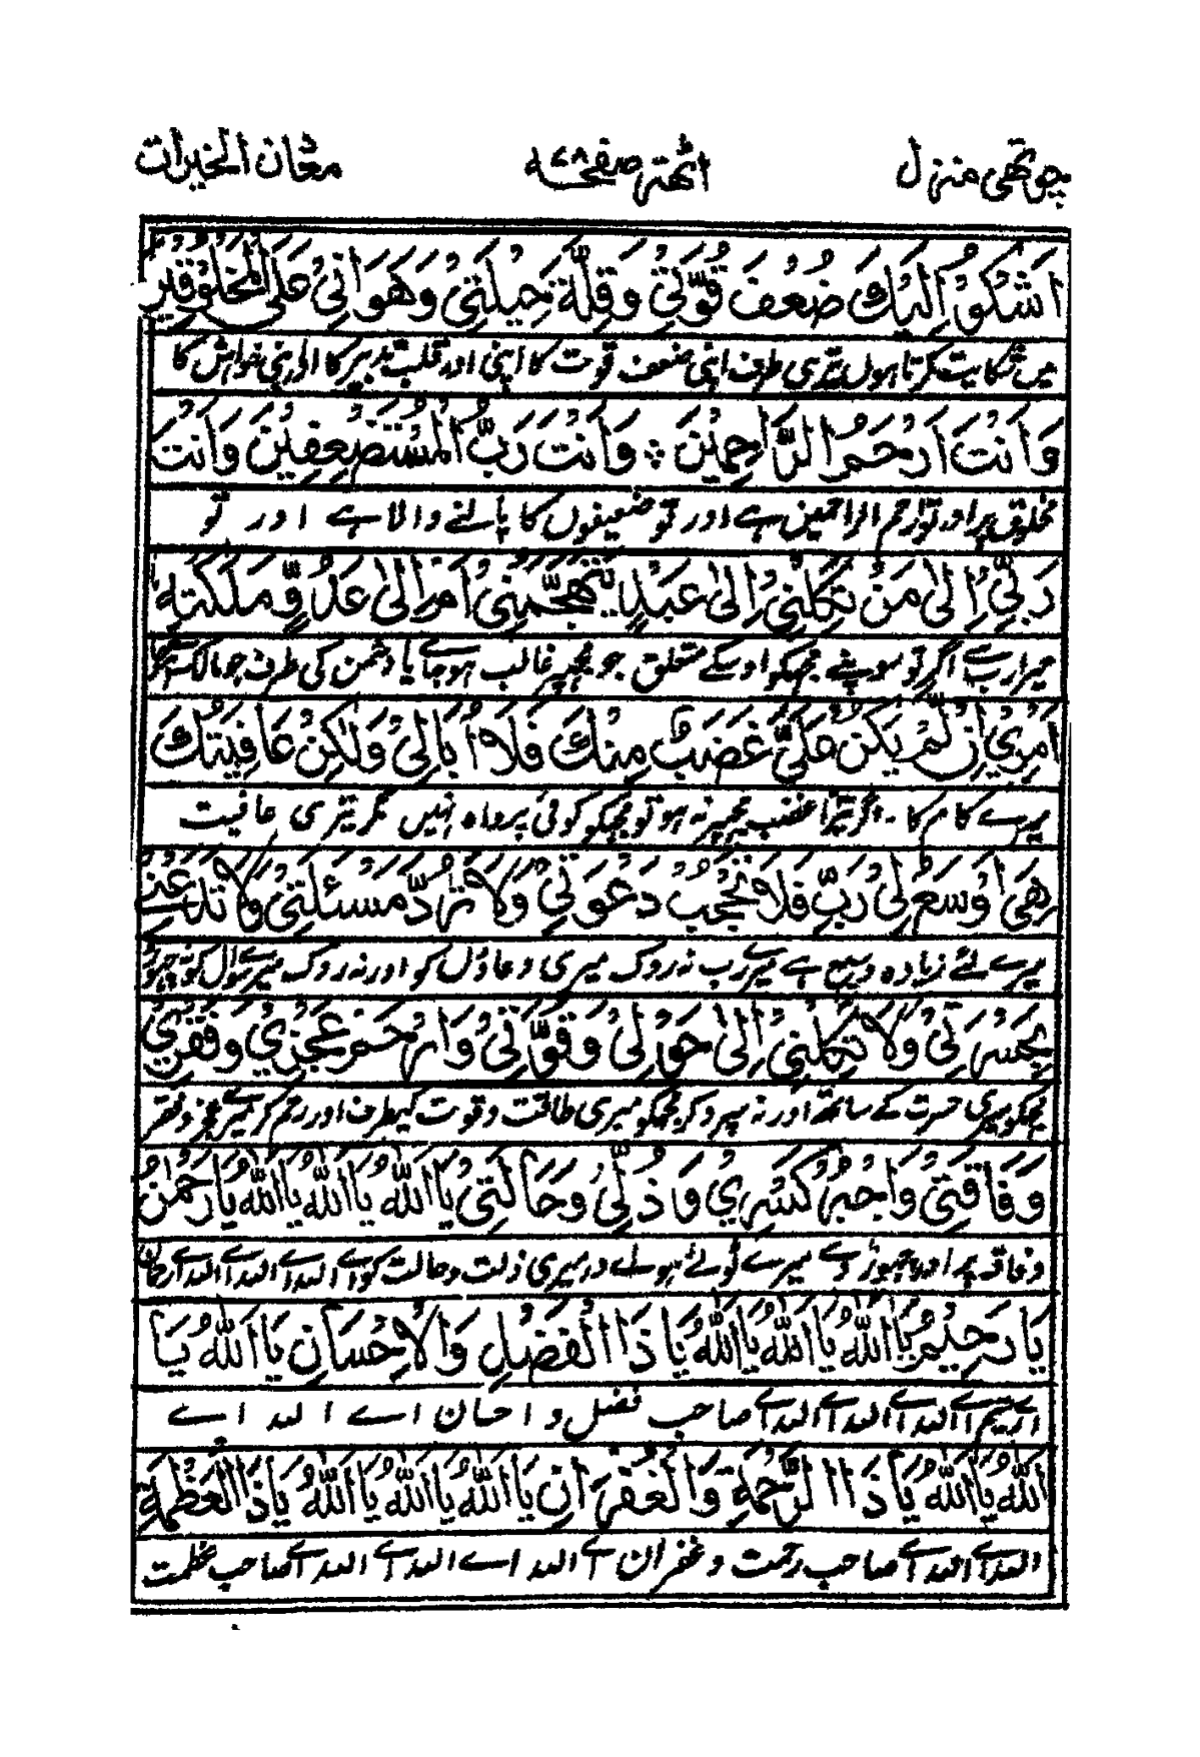 چوتھی منزل اٹھتر صفحہ ۷۸ معان الخیرات
اَشْكُوْ اِلَيْكَ ضُعْفَ قُوَّتِيْ وَقِلَّةَ حِيْلَتِيْ وَهَوَانِيْ عَلَى الْمَخْلُوْقِيْنَ
میں شکایت کرتا ہوں تیری طرف اپنی ضعف قوت کا اپنی اور قلت تدبیر کا اپنی خواہش کا
وَاَنْتَ اَرْحَمُ الرَّاحِمِيْنَ ؞ وَاَنْتَ رَبُّ الْمُسْتَضْعِفِيْنَ وَاَنْتَ
مخلوق پر اور تو ارحم الراحمین ہے اور تو ضعیفوں کا پالنے والا ہے اور تو
رَبِّيْ اِلٰى مَنْ تَكِلُنِيْ اِلٰى عَبْدٍ يَتَهَجَّمُنِيْ اَمْ اِلٰى عَدُوٍّ مَلَّكْتَهٗ
میرا رب ہے اگر تو سونپنے مجھکو اوسکے متعلق جو مجھپر غالب ہو جائے یا دشمن کی طرف جو مالک
اَمْرِيْ اِنْ لَّمْ يَكُنْ عَلَيَّ غَضَبٌ مِنْكَ فَلَا اُبَالِيْ وَلٰكِنْ عَافِيَتُكَ
میرے کام کا ۔ اگر تیرا غضب مجھپر نہ ہو تو مجھکو کوئی پرواہ نہیں مگر تیری عافیت
هِيَ اَوْسَعُ لِيْ رَبِّ فَلَا تَحْجُبْ دَعْوَتِيْ وَلَا تَرُدَّ مَسْئَلَتِيْ وَلَا تَدَعْنِيْ
میرے لئے زیادہ وسیع ہے میرے رب نہ روک میری دعاؤں کو اور نہ روک میرے سوال کو نہ چھوڑ
بِحَسْرَتِيْ وَلَا تَكِلْنِيْ اِلٰى حَوْلِيْ وَقُوَّتِيْ وَارْحَمْ عَجْزِيْ وَفَقْرِيْ
مجھکو میری حسرت کے ساتھ اور نہ سپرد کر مجھکو میری طاقت و قوت کیطرف اور رحم کر میرے عجز و فقر
وَفَاقَتِيْ وَاجْبُرْ كَسْرِيْ وَذُلِّيْ وَحَالَتِيْ يَا اَللّٰهُ يَا اَللّٰهُ يَا اَللّٰهُ يَا رَحْمٰنُ
و فاقہ پر اور جوڑ دے میرے ٹوٹے ہوئے میری ذلت و حالت کو اے اللہ اے اللہ اے اللہ اے رحمان
يَا رَحِيْمُ يَا اَللّٰهُ يَا اَللّٰهُ يَا اَللّٰهُ يَا ذَا الْفَضْلِ وَالْاِحْسَانِ يَا اَللّٰهُ يَا
اے رحیم اے اللہ اے اللہ اے اللہ اے صاحب فضل و احسان اے اللہ اے
اَللّٰهُ يَا اَللّٰهُ يَا ذَا الرَّحْمَةِ وَالْغُفْرَانِ يَا اَللّٰهُ يَا اَللّٰهُ يَا اَللّٰهُ يَا ذَا الْعَظَمَةِ
اللہ اے اللہ اے صاحب رحمت و غفران اے اللہ اے اللہ اے اللہ اے صاحب عظمت